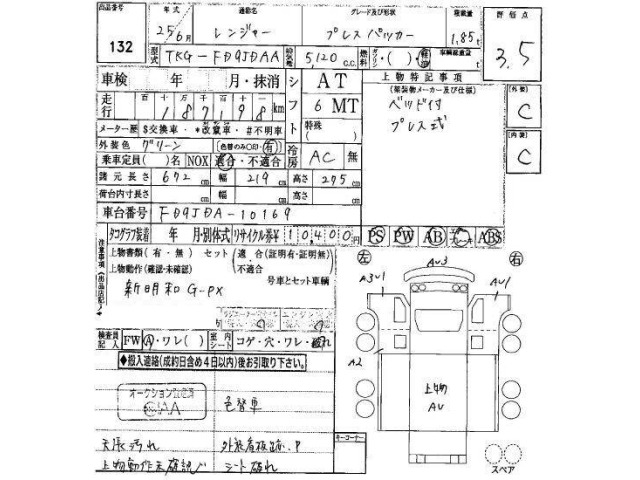 出品番号 132
年式 25年6月 通称名 レンジャー グレード及び形状 プレスパッカー 積載量 1.85t 評価点 3.5
型式 TKG-FD9JDAA 排気量 5,120 C.C. 燃料 ガソリン・( )・軽油 車輌総重量 t
車検 年 月・抹消 シフト AT 上物特記事項
走行 十 万 千 百 十 一 187198 km 6 MT (架装物メーカー及び仕様) 外装 C
メーター歴 $交換車・*改竄車・#不明車 特殊( ) ベッド付
外装色 グリーン (色替のみ○印・有) 冷房 AC 無 プレス式 内装 C
乗車定員( )名 NOX 適合・不適合
諸元長さ 672 cm 幅 219 cm 高さ 275 cm
荷台内寸長さ cm 幅 cm 高さ cm
車台番号 FD9JDA-10169
タコグラフ装着 年 月・別体式 リサイクル券¥ 10,400円 PS PW AB ABS
注意事項(出品店記入) 上物書類(有・無) セット(適合(証明有・証明無) 不適合)
上物動作(確認・未確認) 号車とセット車輌
新明和 G-PX
左 AU3 右
A3U1 AU1
検査員記入 FW A・ワレ( ) 室内シート コゲ・穴・ワレ・破れ
A2
◆搬入連絡(成約日含め4日以内)後お引取り下さい。
上物 AU
オークション
CAA
色替車
天張汚れ 外装看板跡.P キーコーナー
上物動作未確認 シート破れ
スペア